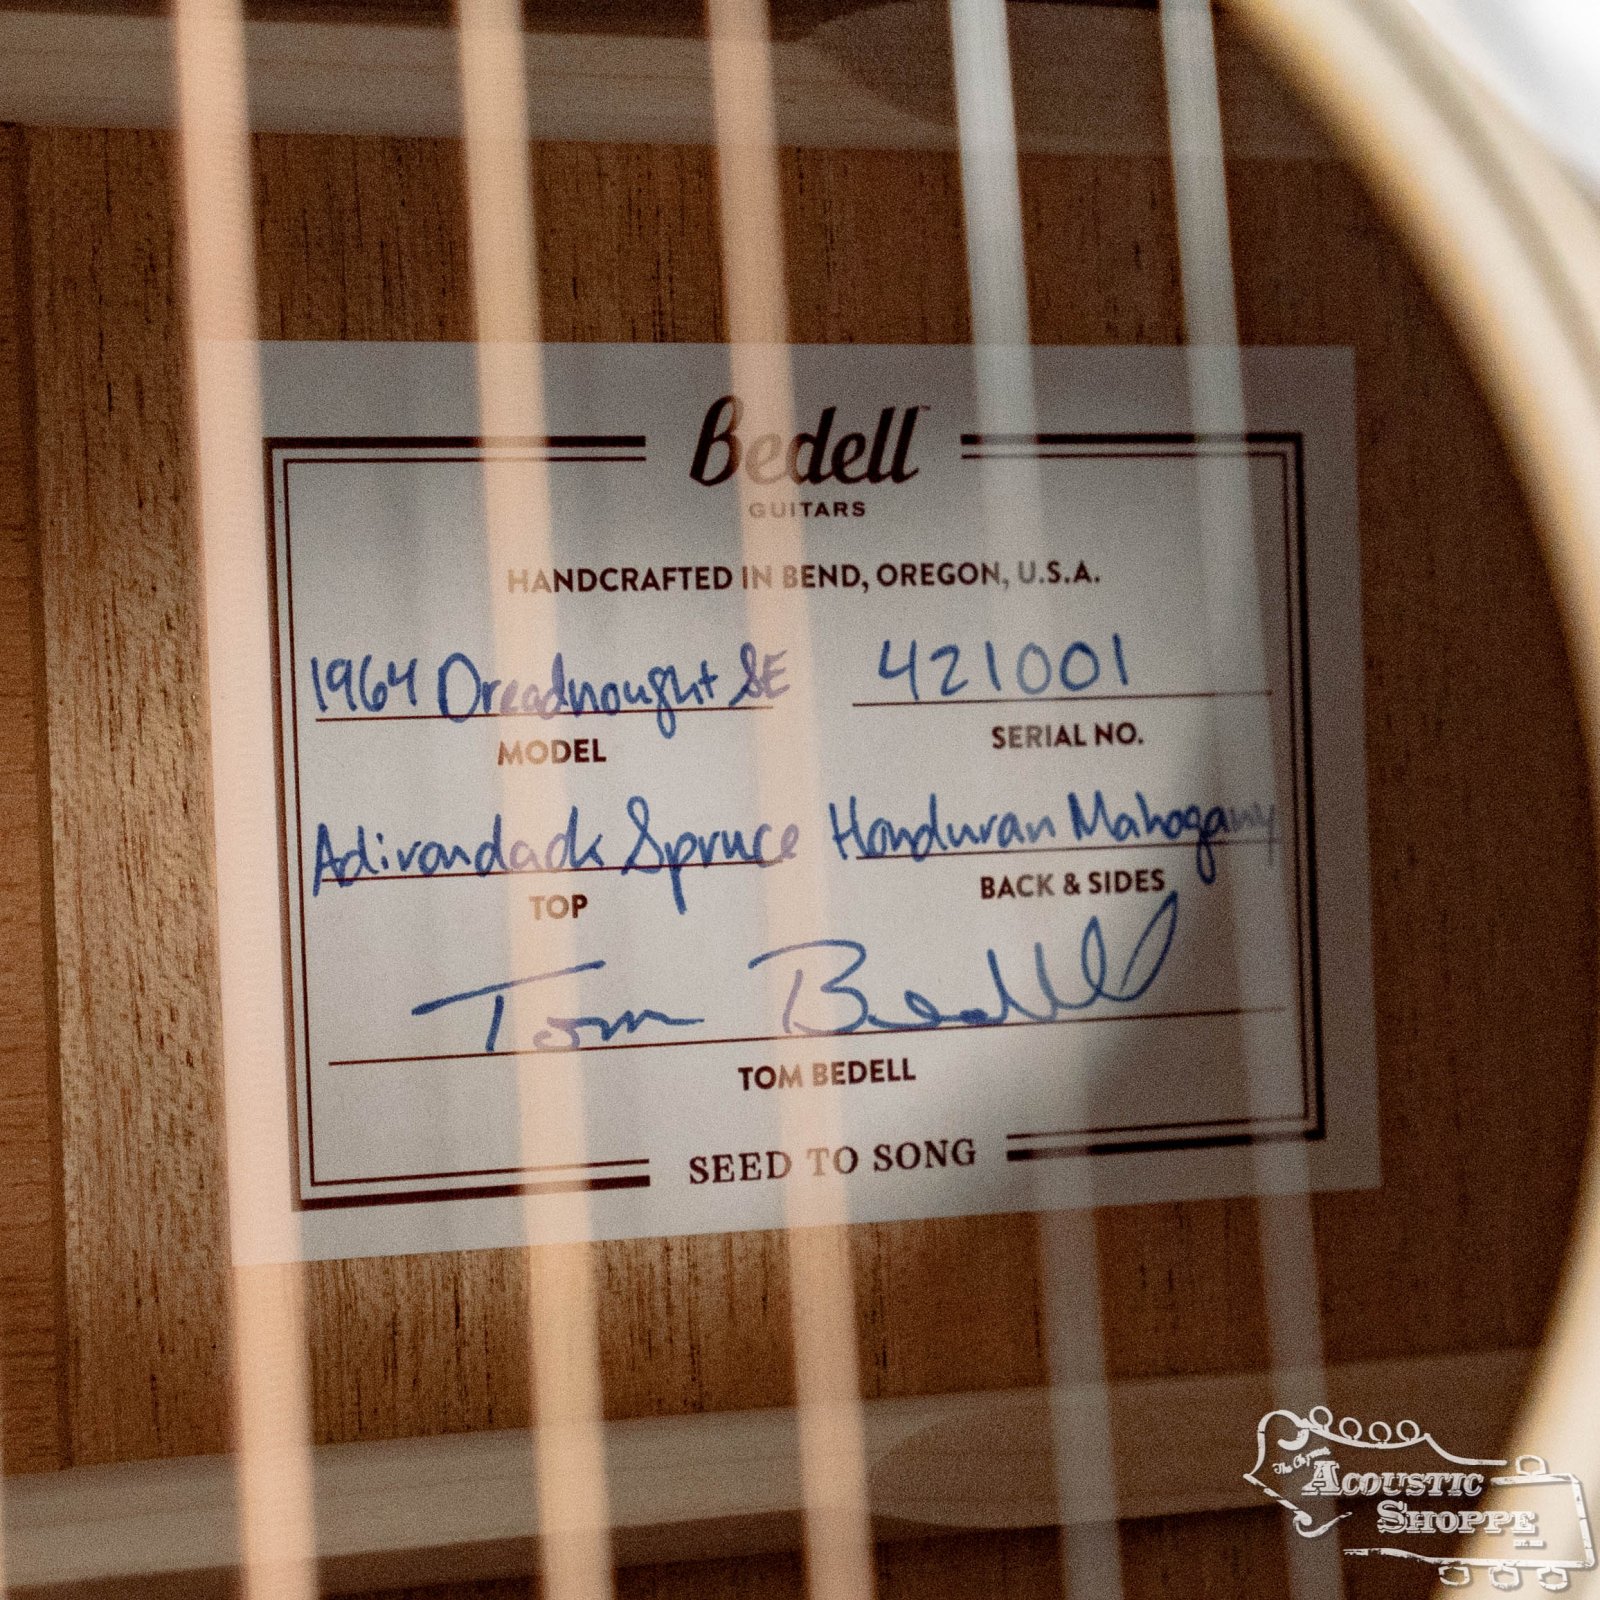 Bedell™
GUITARS
HANDCRAFTED IN BEND, OREGON, U.S.A.
1964 Dreadnought SE 421001
MODEL SERIAL NO.
Adirondack Spruce Honduran Mahogany
TOP BACK & SIDES
Tom Bedell
TOM BEDELL
SEED TO SONG
ACOUSTIC
SHOPPE